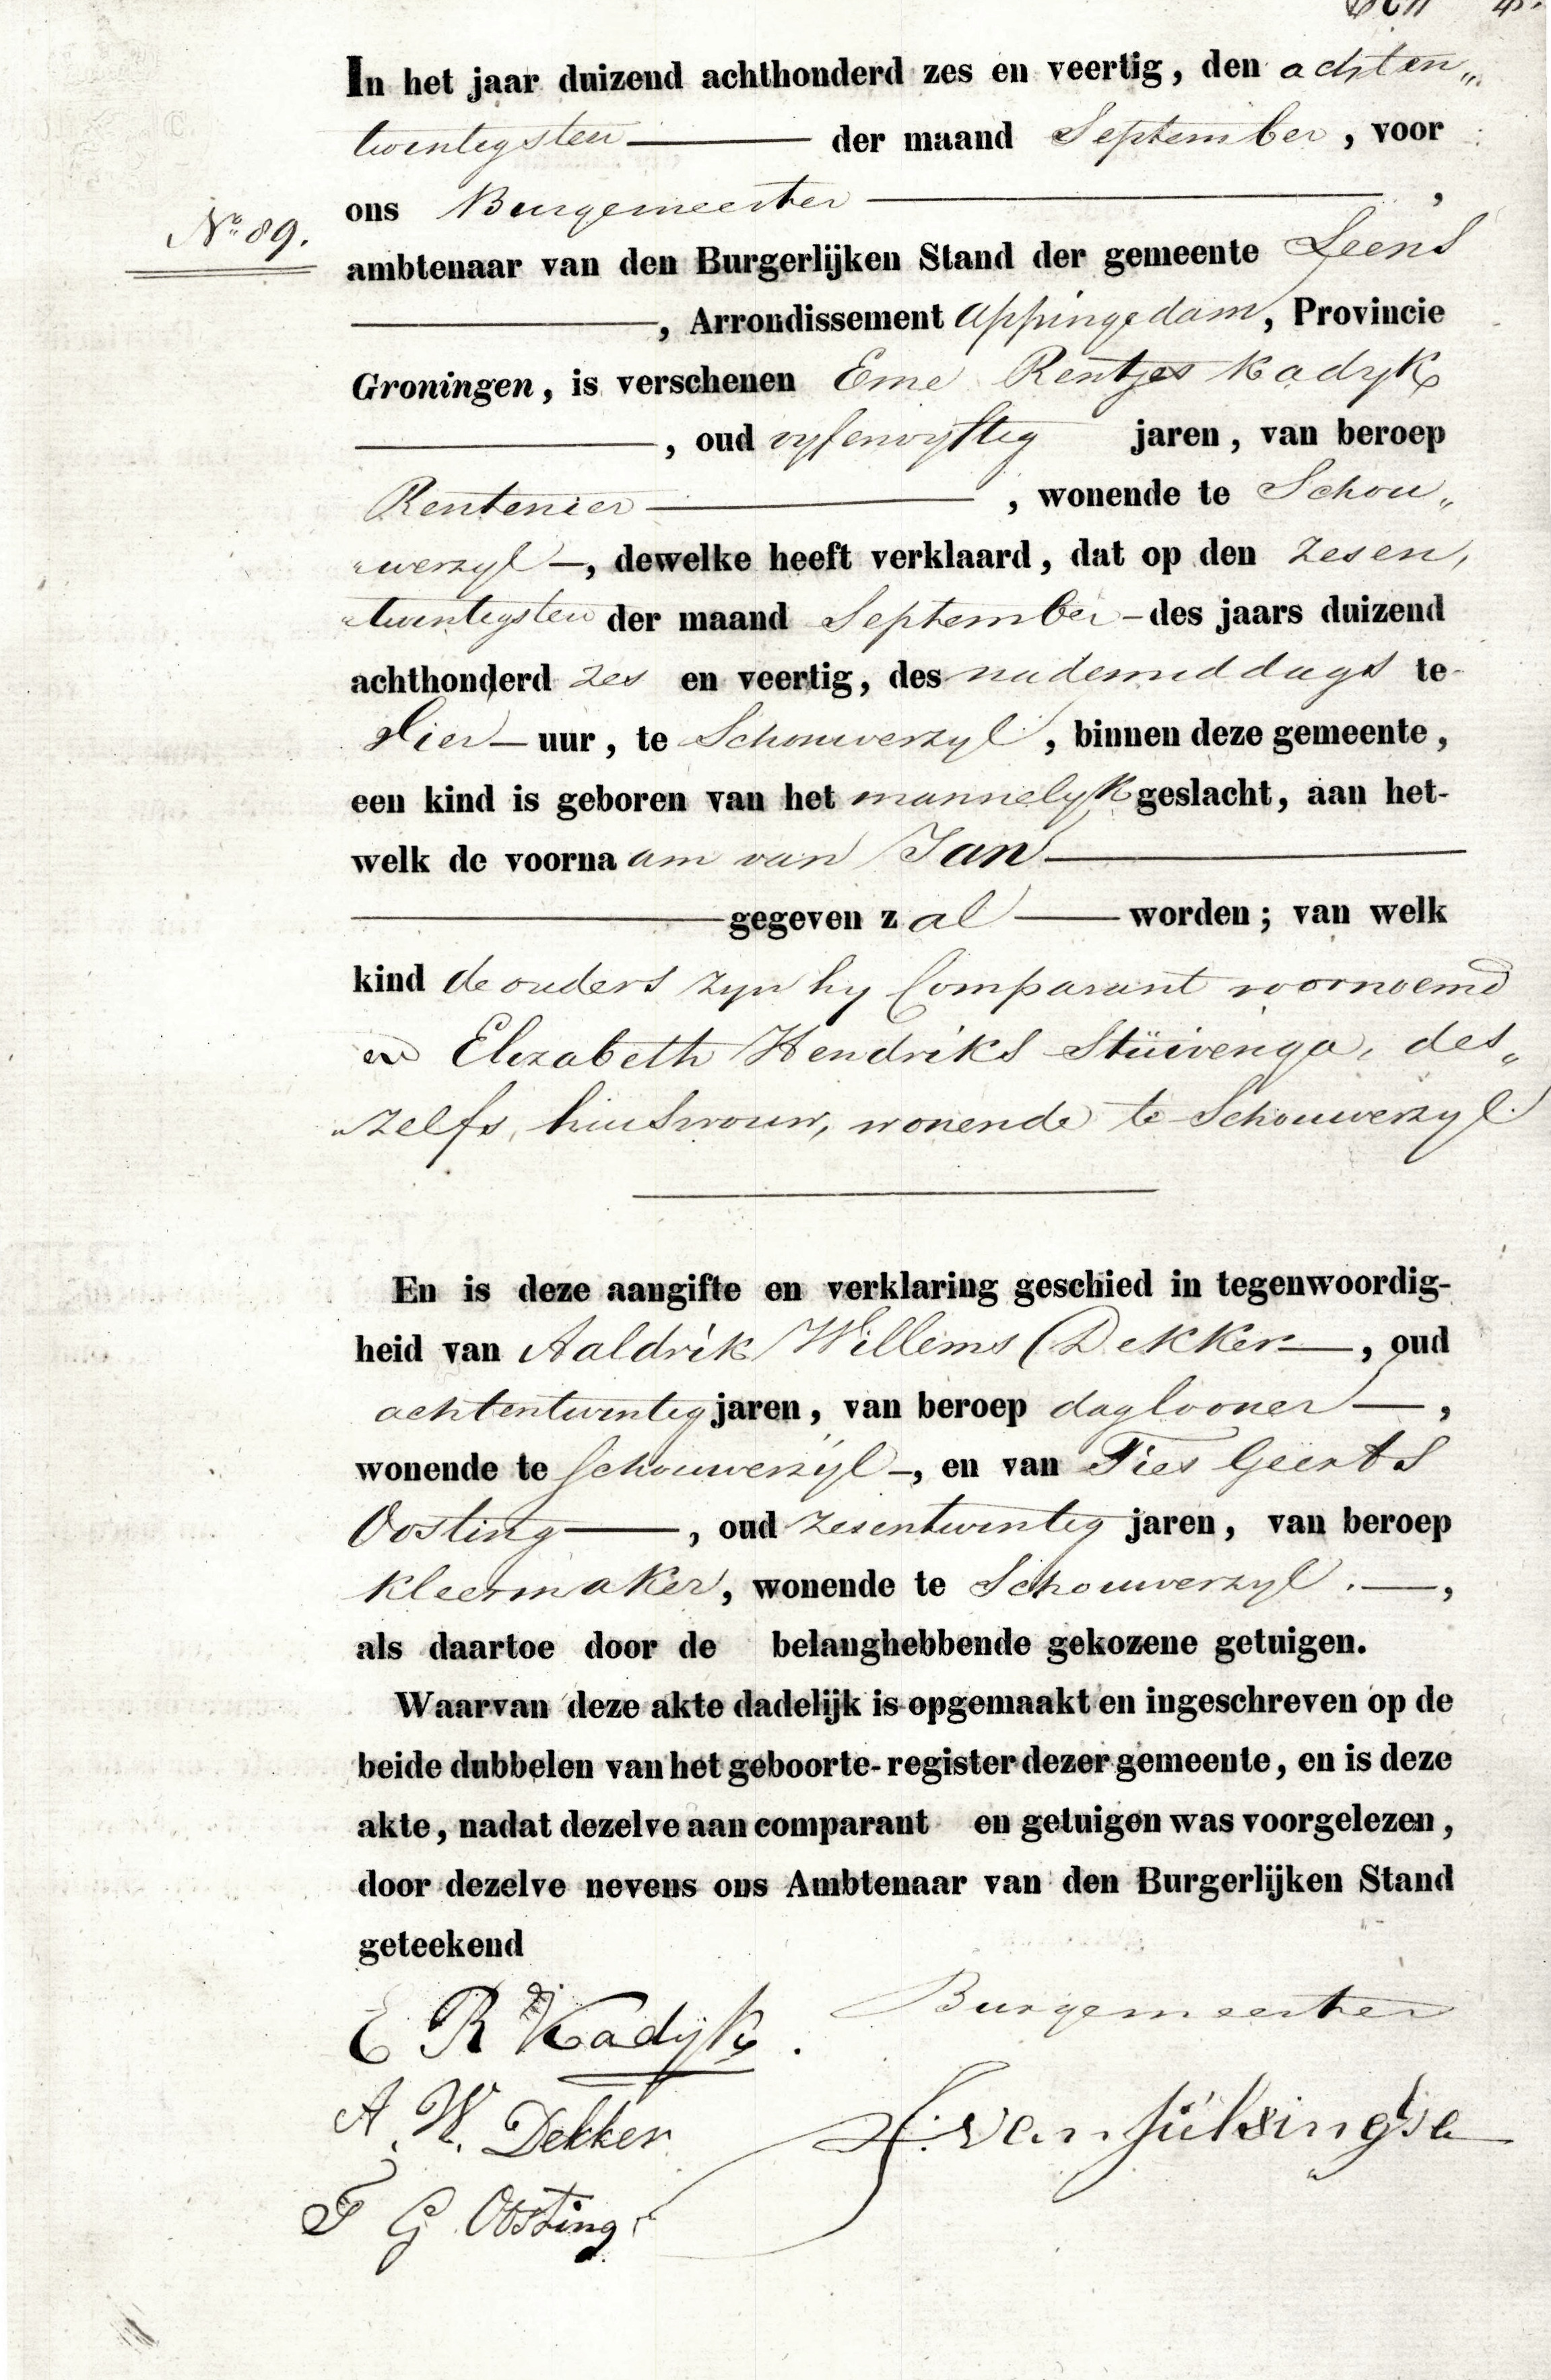 In het jaar duizend achthonderd zes en veertig, den achten„
twentigsten der maand September, voor
ons Burgemeester ,
No. 89.
ambtenaar van den Burgerlijken Stand der gemeente Leens
, Arrondissement Appingedam, Provincie
Groningen, is verschenen Eme Rentjes Kadyk
, oud vyfenvyftig jaren, van beroep
Rentenier , wonende te Schou„
„werzyl —, dewelke heeft verklaard, dat op den zesen,
„twentigsten der maand September – des jaars duizend
achthonderd zes en veertig, des nademiddags te
vier — uur, te Schouwerzyl, binnen deze gemeente,
een kind is geboren van het mannelyk geslacht, aan het-
welk de voornaam van Jan
gegeven zal worden; van welk
kind de ouders zyn hy Comparant voornoemd
en Elizabeth Hendriks Stuivenga, des„
„zelfs, huisvrouw, wonende te Schouwerzyl.
En is deze aangifte en verklaring geschied in tegenwoordig-
heid van Aaldrik Willems Dekker —, oud
achtentwintig jaren, van beroep daglooner —,
wonende te Schouwerzyl —, en van Ties Geerts
Oosting —, oud zesentwintig jaren, van beroep
kleermaker, wonende te Schouwerzyl. —,
als daartoe door de belanghebbende gekozene getuigen.
Waarvan deze akte dadelijk is opgemaakt en ingeschreven op de
beide dubbelen van het geboorte-register dezer gemeente, en is deze
akte, nadat dezelve aan comparant en getuigen was voorgelezen,
door dezelve nevens ons Ambtenaar van den Burgerlijken Stand
geteekend
E R Kadyk. Burgemeester
A. W. Dekker
T G Oosting